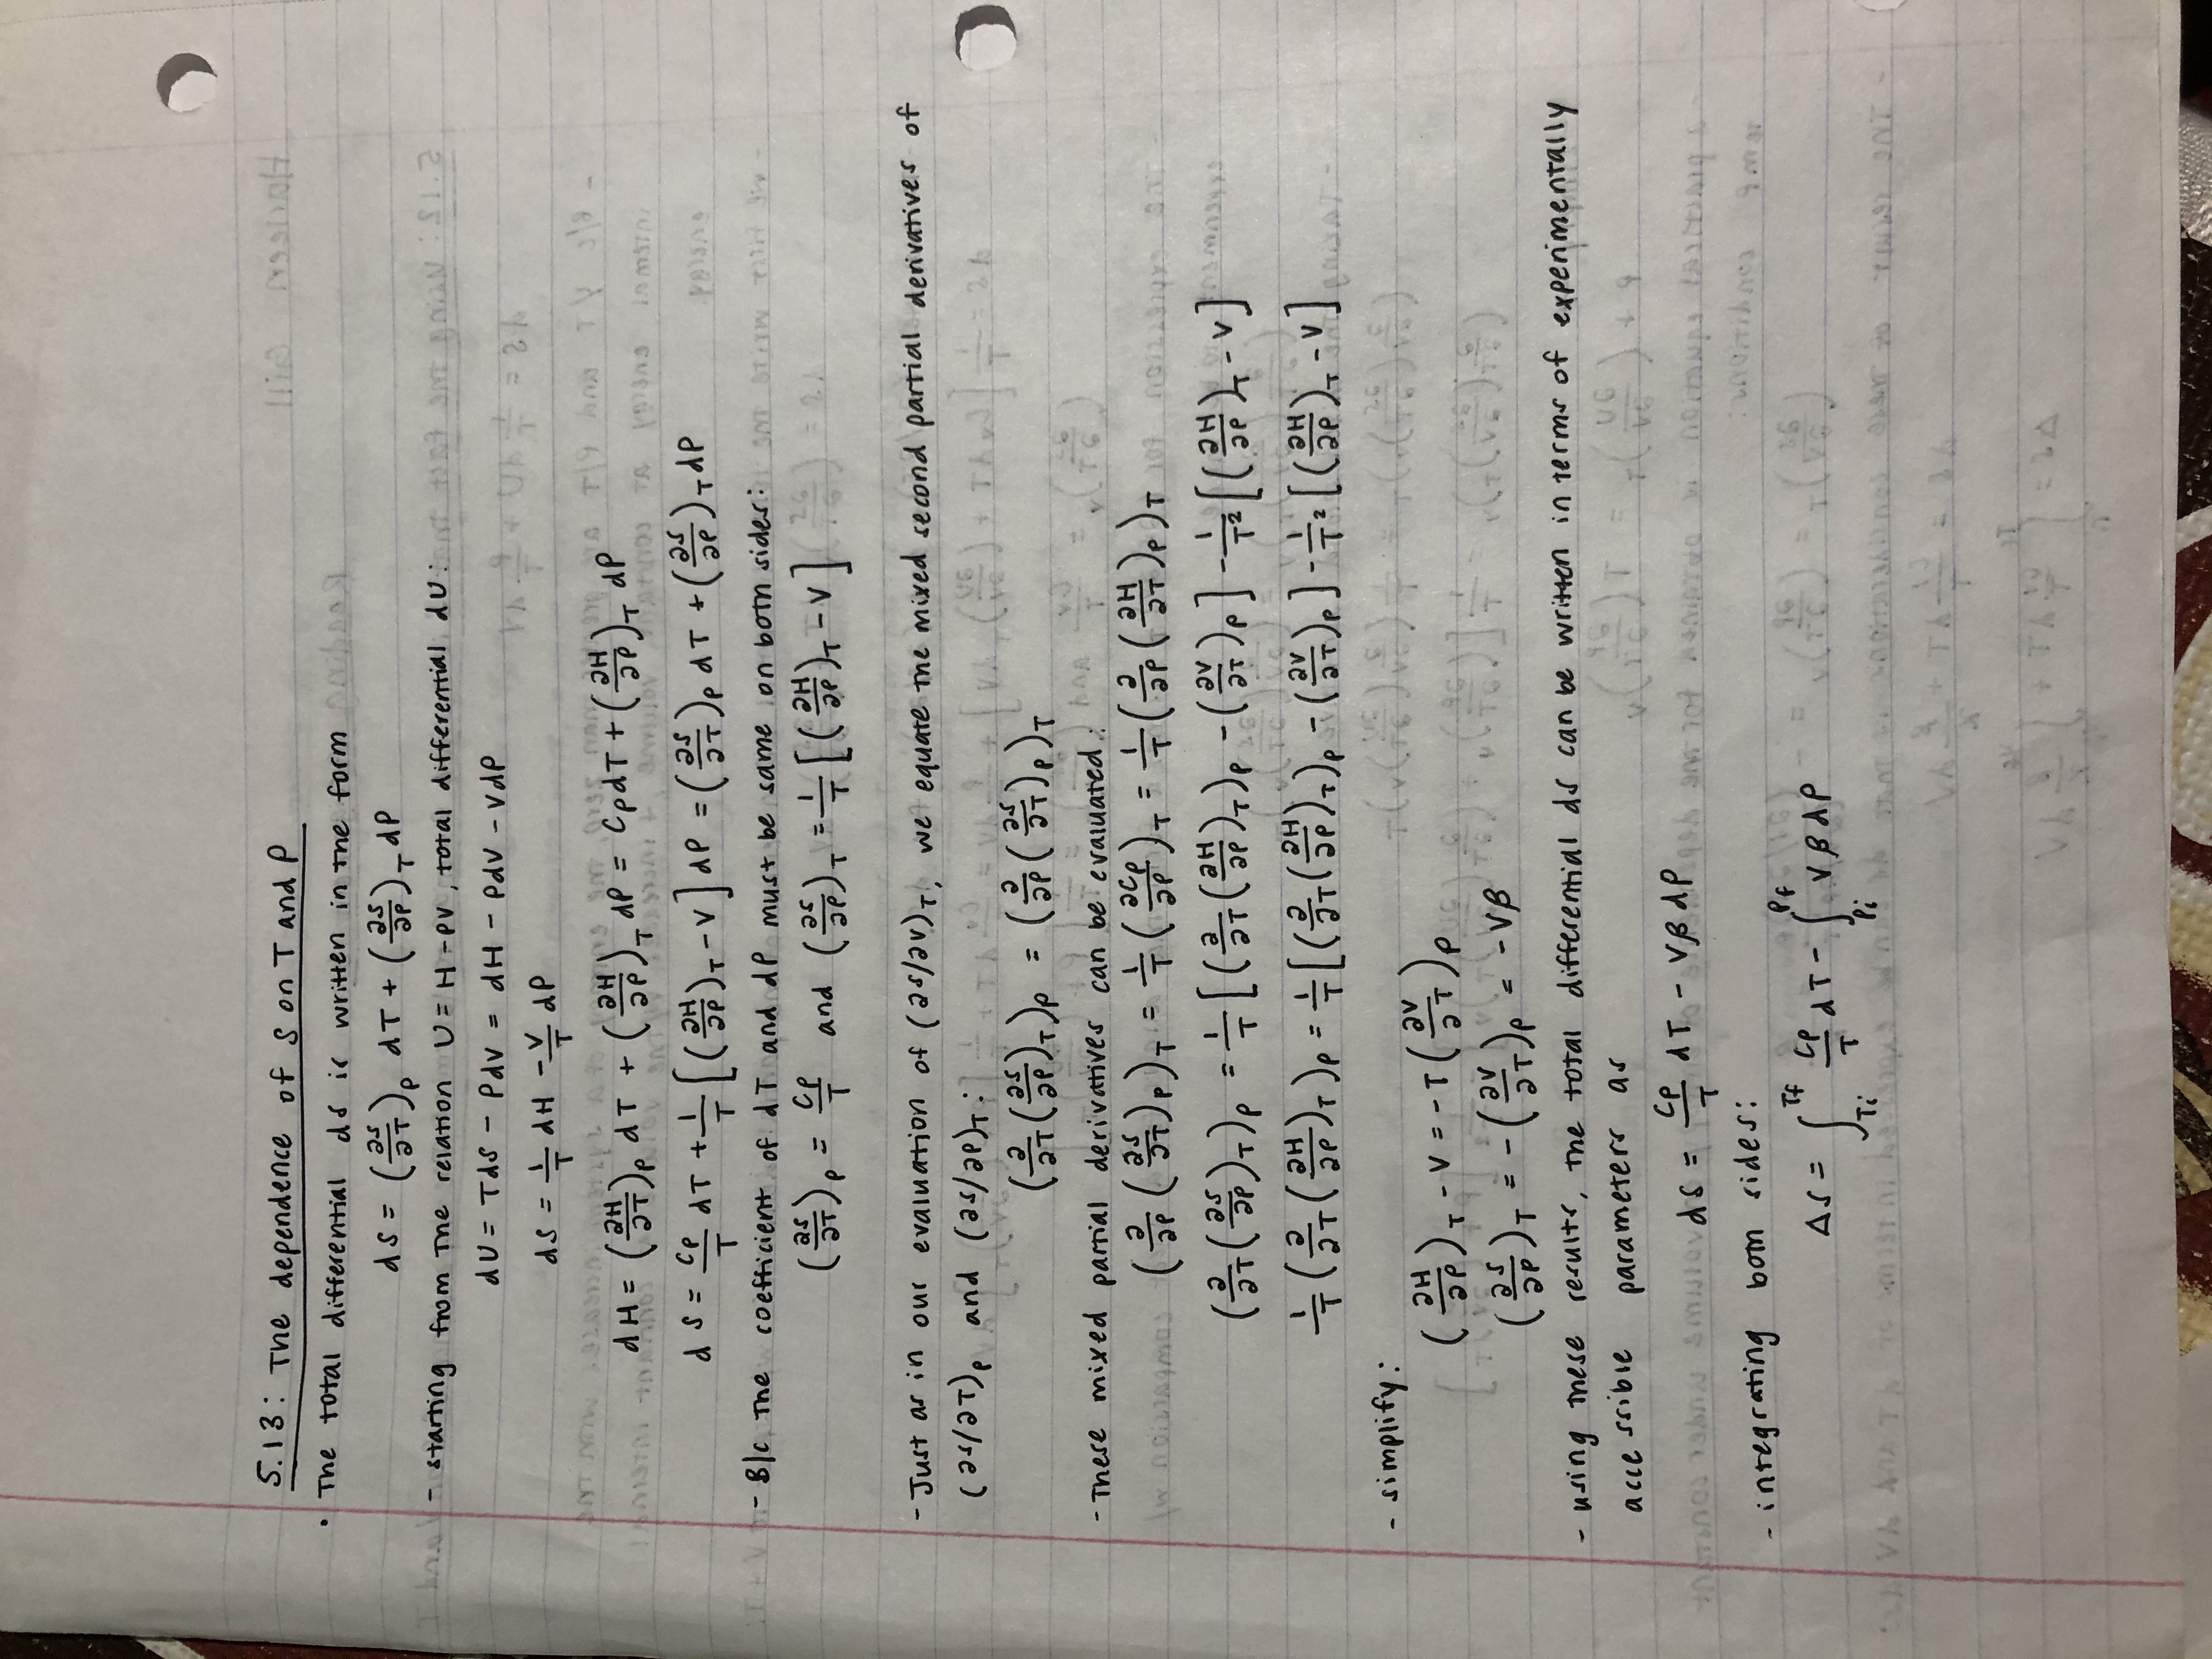 5.13: The dependence of S on T and P
• The total differential dS is written in the form
dS = (∂S/∂T)_P dT + (∂S/∂P)_T dP
- starting from the relation U = H - PV, total differential dU:
dU = TdS - PdV = dH - PdV - VdP
dS = 1/T dH - V/T dP
dH = (∂H/∂T)_P dT + (∂H/∂P)_T dP = C_P dT + (∂H/∂P)_T dP
dS = C_P/T dT + 1/T [(∂H/∂P)_T - V] dP = (∂S/∂T)_P dT + (∂S/∂P)_T dP
- B/c the coefficient of dT and dP must be same on both sides:
(∂S/∂T)_P = C_P/T and (∂S/∂P)_T = 1/T [(∂H/∂P)_T - V]
- Just as in our evaluation of (∂S/∂V)_T, we equate the mixed second partial derivatives of
(∂S/∂T)_P and (∂S/∂P)_T:
(∂/∂T (∂S/∂P)_T)_P = (∂/∂P (∂S/∂T)_P)_T
- These mixed partial derivatives can be evaluated:
(∂/∂P (∂S/∂T)_P)_T = 1/T (∂C_P/∂P)_T = 1/T (∂/∂P (∂H/∂T)_P)_T
(∂/∂T (∂S/∂P)_T)_P = 1/T [(∂/∂T (∂H/∂P)_T)_P - (∂V/∂T)_P] - 1/T² [(∂H/∂P)_T - V]
1/T (∂/∂T (∂H/∂P)_T)_P = 1/T [(∂/∂T (∂H/∂P)_T)_P - (∂V/∂T)_P] - 1/T² [(∂H/∂P)_T - V]
- simplify:
(∂H/∂P)_T - V = -T (∂V/∂T)_P
(∂S/∂P)_T = - (∂V/∂T)_P = -Vβ
- using these results, the total differential dS can be written in terms of experimentally
accessible parameters as
dS = C_P/T dT - Vβ dP
- integrating both sides:
ΔS = ∫_Ti^Tf C_P/T dT - ∫_Pi^Pf Vβ dP